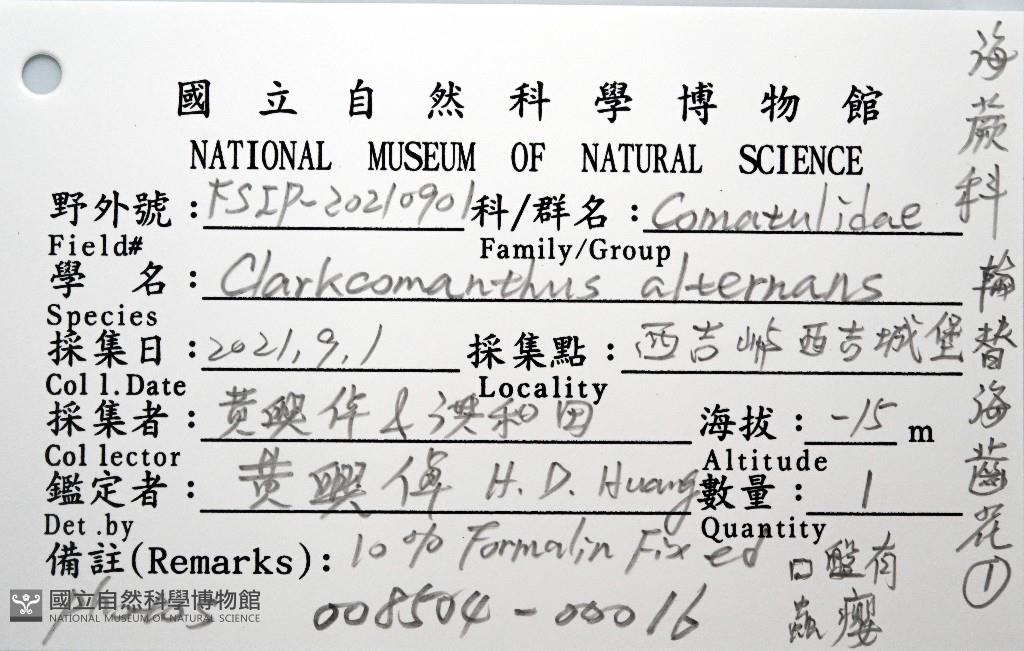 國立自然科學博物館
NATIONAL MUSEUM OF NATURAL SCIENCE
野外號：FSIP-20210901 科/群名：Comatulidae
Field# Family/Group
學 名：Clarkcomanthus alternans
Species
採集日：2021,9,1 採集點：西吉嶼西吉城堡
Coll.Date Locality
採集者：黃興倬 & 洪和田 海拔：-15 m
Collector Altitude
鑑定者：黃興倬 H. D. Huang 數量：1
Det.by Quantity
備註(Remarks)：10% Formalin Fixed
口盤有
蟲癭
008504-00016
海蕨科 輪替海齒花①
國立自然科學博物館
NATIONAL MUSEUM OF NATURAL SCIENCE